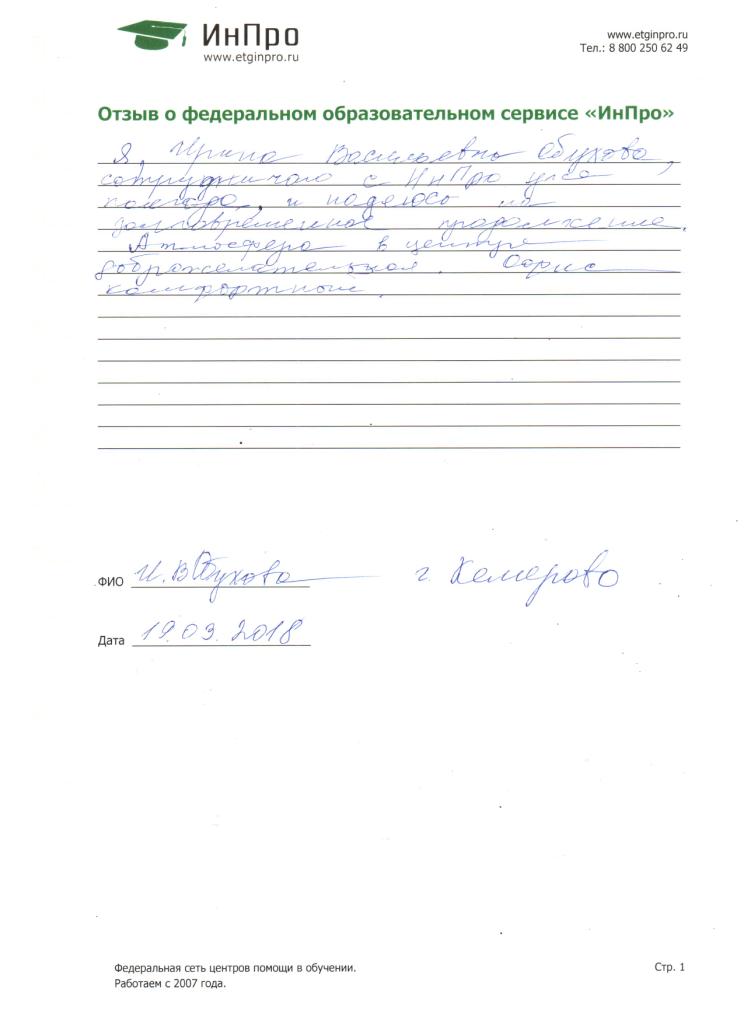 ИнПро
www.etginpro.ru
www.etginpro.ru
Тел.: 8 800 250 62 49
Отзыв о федеральном образовательном сервисе «ИнПро»
Я, Ирина Васильевна Обухова,
сотрудничаю с ИнПро уже
полгода, и надеюсь на
долговременное продолжение.
Атмосфера в центре
доброжелательная. Офис
комфортный.
ФИО И.В Обухова г. Кемерово
Дата 19.03.2018
Федеральная сеть центров помощи в обучении.
Стр. 1
Работаем с 2007 года.